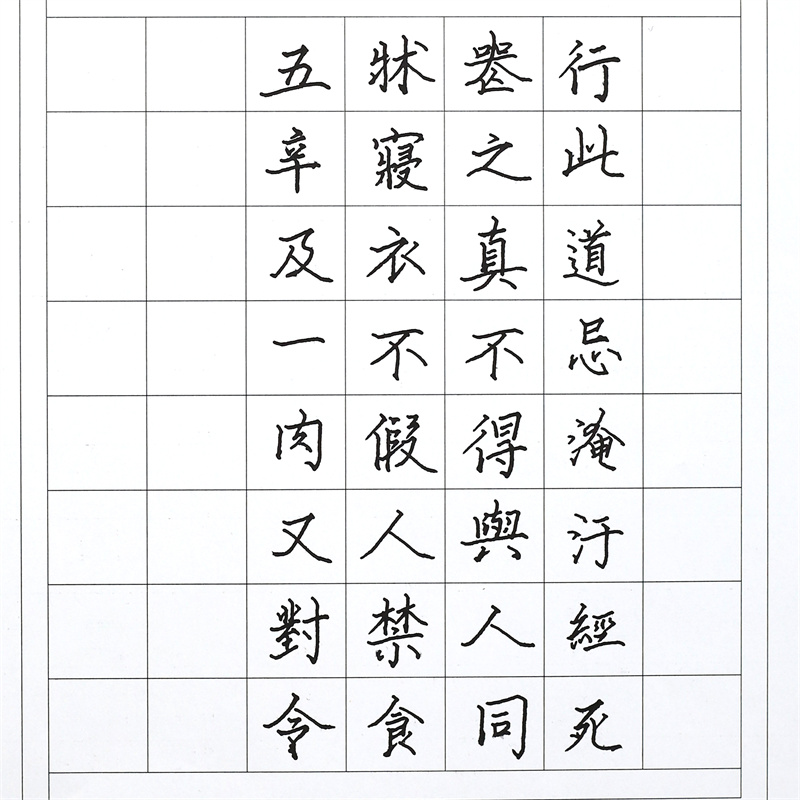 行此道忌淹汙經死
喪之真不得與人同
牀寢衣不假人禁食
五辛及一肉又對令